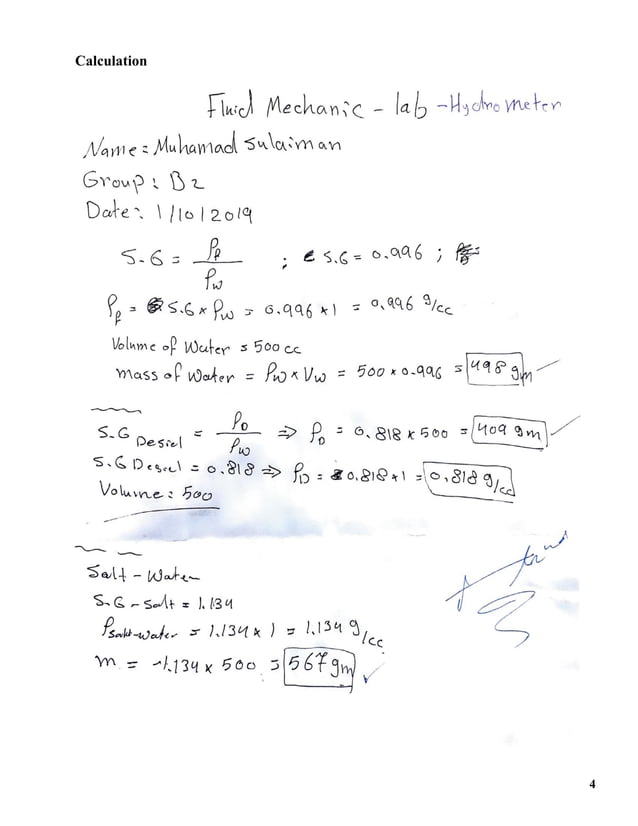 Calculation
Fluid Mechanic - lab - Hydrometer
Name: Muhamad Sulaiman
Group: B2
Date: 1/10/2019
S.G = ρf / ρw ; S.G = 0.996 ;
ρf = S.G × ρw = 0.996 × 1 = 0.996 g/cc
Volume of Water = 500 cc
mass of Water = ρw × Vw = 500 × 0.996 = 498 gm
S.G Desiel = ρD / ρw ⇒ ρD = 0.818 × 500 = 409 gm
S.G Desiel = 0.818 ⇒ ρD = 0.818 × 1 = 0.818 g/cc
Volume: 500
Salt - Water
S.G - Salt = 1.134
ρsalt-water = 1.134 × 1 = 1.134 g/cc
m = 1.134 × 500 = 567 gm
4